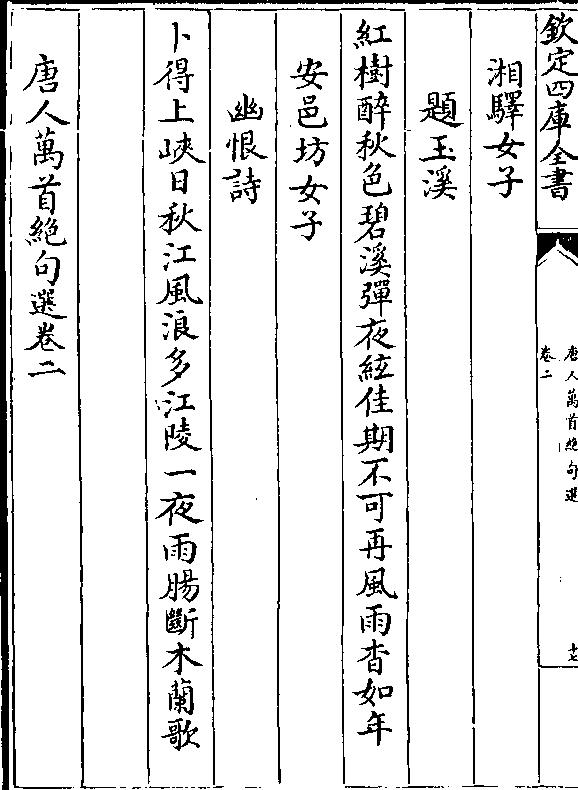 欽定四庫全書
唐人萬首絶句選
卷二
十七
湘驛女子
題玉溪
紅樹醉秋色碧溪彈夜絃佳期不可再風雨杳如年
安邑坊女子
幽恨詩
卜得上峽日秋江風浪多江陵一夜雨腸斷木蘭歌
唐人萬首絶句選卷二